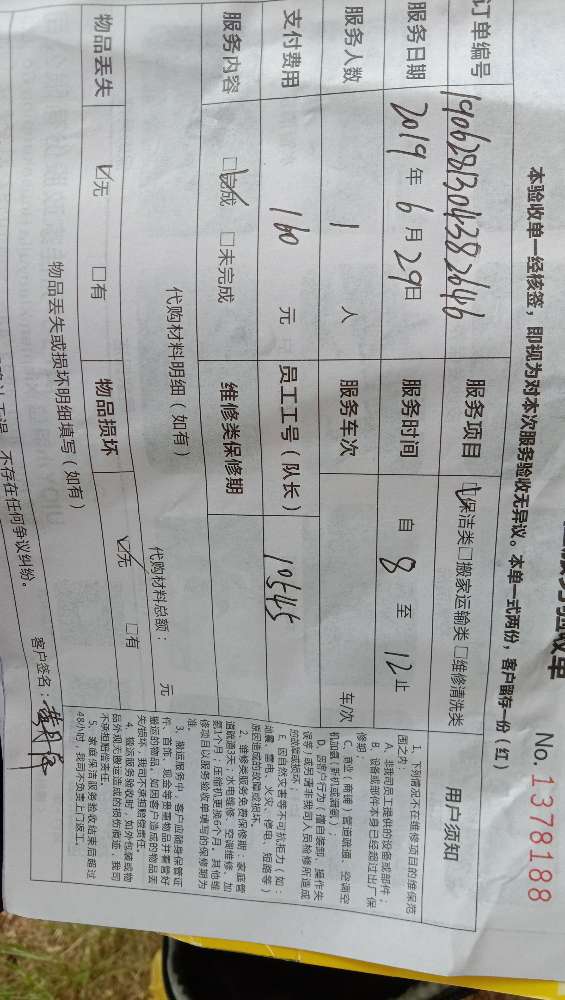 服务验收单 No.1378188
本验收单一经核签，即视为对本次服务验收无异议。本单一式两份，客户留存一份（红）
订单编号 190628130438 2646 服务项目 ☑保洁类□搬家运输类□维修清洗类
服务日期 2019年6月29日 服务时间 自 8 至 12 止
服务人数 1 人 服务车次 车次
支付费用 160 元 员工工号（队长） 10545
服务内容 ☑完成 □未完成 维修类保修期
代购材料明细（如有） 代购材料总额： 元
物品丢失 ☑无 □有 物品损坏 ☑无 □有
物品丢失或损坏明细填写（如有）
不存在任何争议纠纷。 客户签名：
用户须知
1、下列情况不在维修项目的维保范
围之内：
A、非我司员工提供的设备或部件；
B、设备或部件本身已经超过出厂保
修期；
C、商业（商铺）管道疏通、空调空
机加氟（新机或漏氟）；
D、因客户行为（擅自装卸、操作失
误等）或另请非我司人员检修所造成
的故障或损坏
E、因自然灾害等不可抗拒力（如：
地震、雷电、火灾、停电、短路等）
原因造成的故障或损坏。
2、维修类服务免费保修期：家庭管
道疏通3天；水电维修、空调维修、加
氨1个月；压缩机更换6个月，其他维
修项目以服务验收单填写的保修期为
准。
3、搬运服务中，客户应随身保管证
件、首饰、现金等贵重物品并看管好
搬运的物品，如因客户造成的物品丢
失/损坏，我司不承担赔偿责任。
4、搬运服务验收时，如外包装或物
品外观无搬运造成的损伤痕迹，我司
不承担赔偿责任。
5、家庭保洁服务验收结束后超过
48小时，我司不负责上门返工。